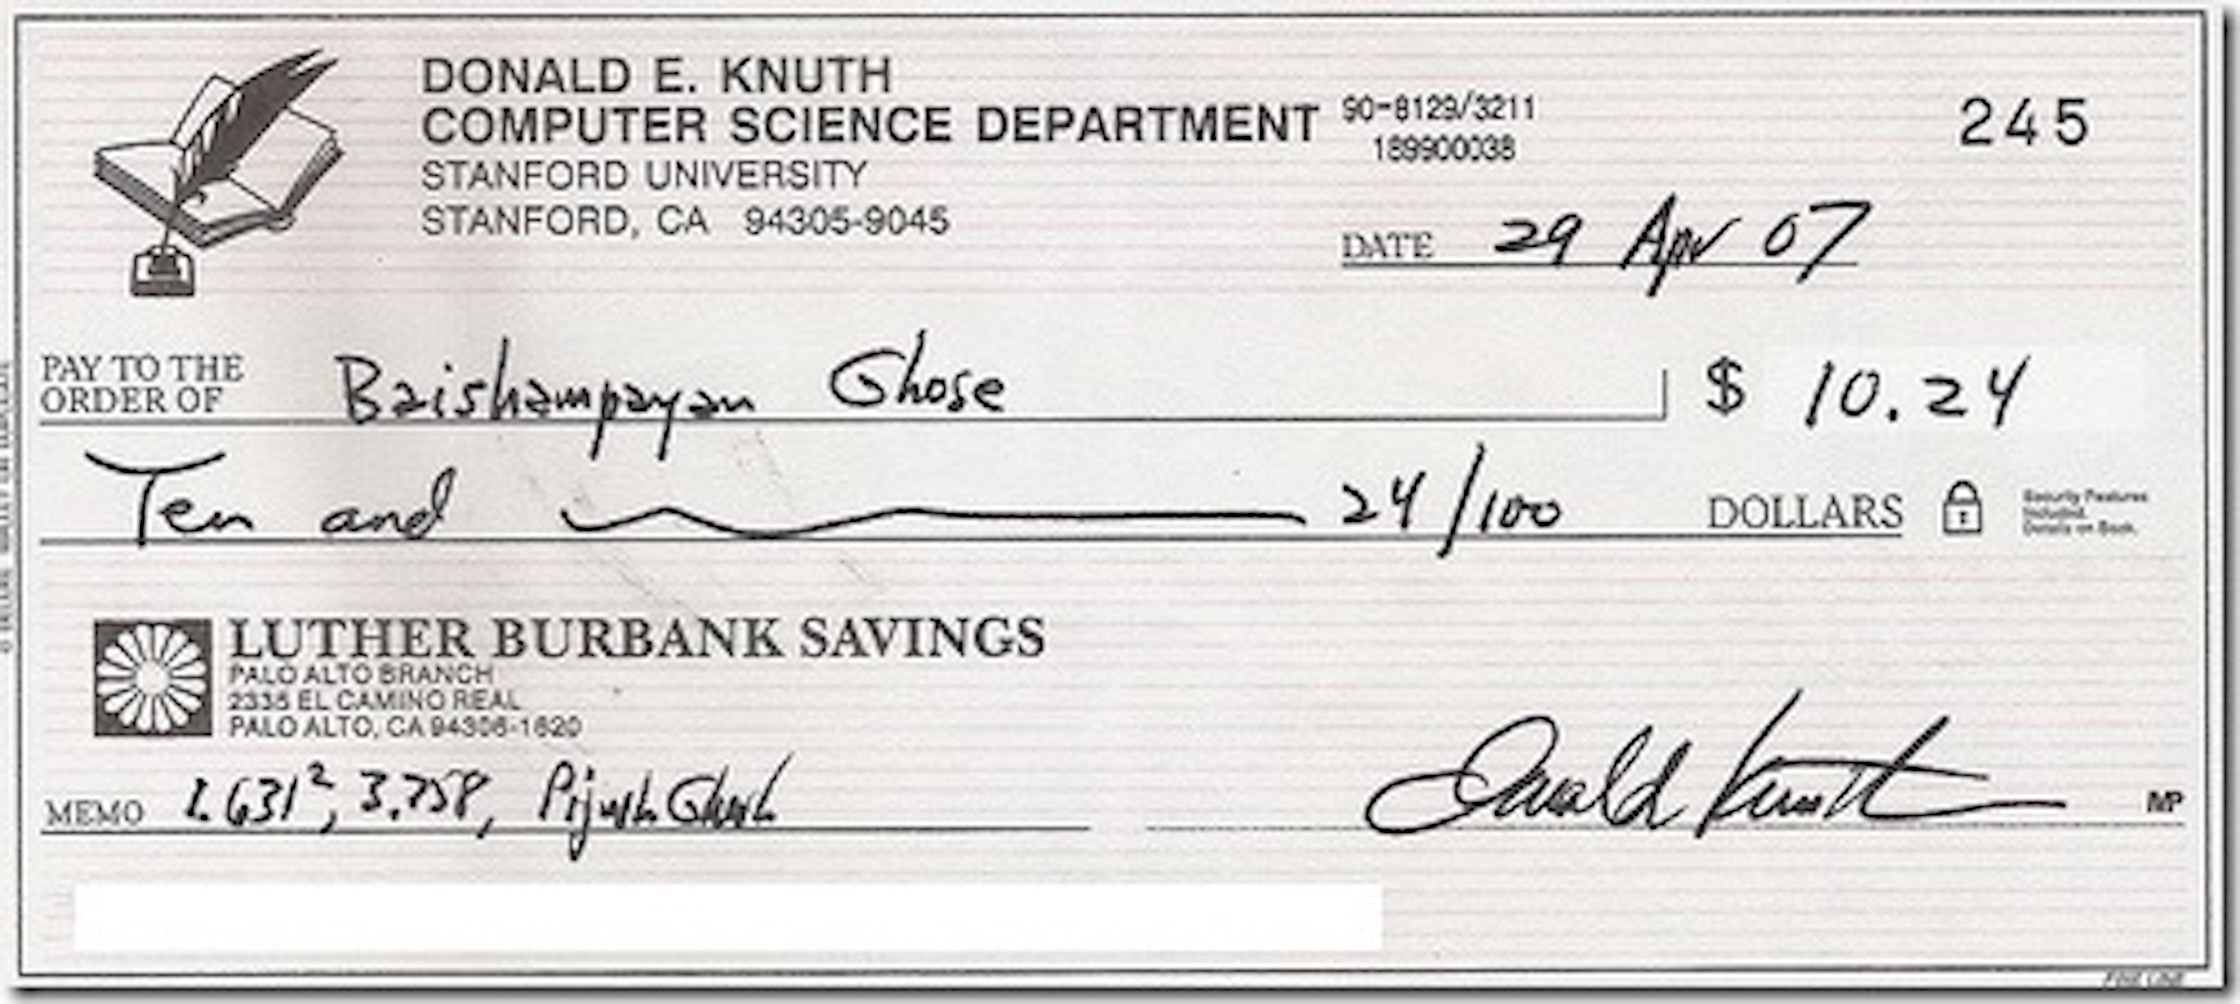 DONALD E. KNUTH
COMPUTER SCIENCE DEPARTMENT
STANFORD UNIVERSITY
STANFORD, CA 94305-9045
90-8129/3211
189900038
245
DATE 29 Apr 07
PAY TO THE
ORDER OF Baishampayan Ghose $ 10.24
Ten and 24/100 DOLLARS
Security Features
Included.
Details on Back.
LUTHER BURBANK SAVINGS
PALO ALTO BRANCH
2335 EL CAMINO REAL
PALO ALTO, CA 94306-1620
MEMO 1.631², 3.758, Pijush Ghosh
Donald Knuth
MP